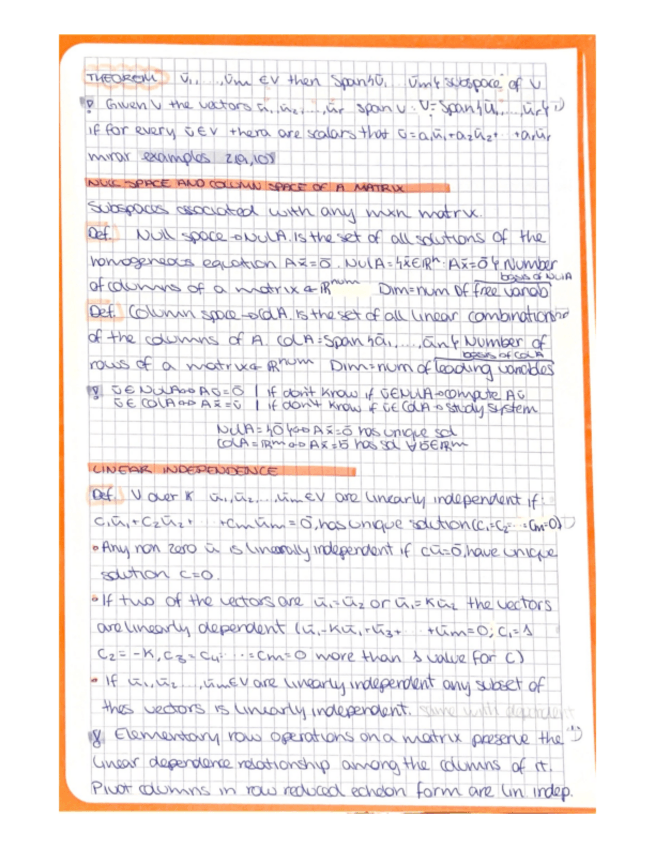 THEOREM ū₁, ..., ūm ∈V then Span{ū₁ ... ūm} subspace of V
Given V the vectors ū₁, ū₂, ..., ūr span V: V=Span{ū₁, ..., ūr}
if for every ū∈V there are scalars that ū=a₁ū₁+a₂ū₂+ +arūr
mirar examples
NULL SPACE AND COLUMN SPACE OF A MATRIX
Subspaces associated with any mxn matrix.
Def. Null space→NulA. Is the set of all solutions of the
homogeneous equation Ax̄=ō. NulA={x̄∈ℝⁿ: Ax̄=ō} Number
basis of NulA
of columns of a matrix ℝnum Dim=num of free variab
Def. Column space→ColA. Is the set of all linear combinations
of the columns of A. ColA=Span{ā₁, ..., ān} Number of
basis of ColA
rows of a matrix ℝnum Dim=num of leading variables
ū∈NulA⇔Aū=ō | if don't know if ū∈NulA→compute Aū
ū∈ColA⇔Ax̄=ū | if don't know if ū∈ColA→study system
NulA={ō}⇔Ax̄=ō has unique sol
ColA=ℝm⇔Ax̄=b̄ has sol ∀b̄∈ℝm
LINEAR INDEPENDENCE
Def. V over K ū₁, ū₂, ..., ūm∈V are linearly independent if:
c₁ū₁+c₂ū₂+ ... +cmūm=ō, has unique solution (c₁=c₂=...=cm=0)
• Any non zero ū is linearly independent if cū=ō, have unique
solution c=0.
• If two of the vectors are ū₁=ū₂ or ū₁=kū₂ the vectors
are linearly dependent (ū₁-kū₂+ū₃+ ... +ūm=0; c₁=1
c₂=-k, c₃=c₄=...=cm=0 more than 1 value for c)
• If ū₁, ū₂, ..., ūm∈V are linearly independent any subset of
thes vectors is linearly independent. same with dependent
Elementary row operations on a matrix preserve the
linear dependence relationship among the columns of it.
Pivot columns in row reduced echelon form are lin indep.